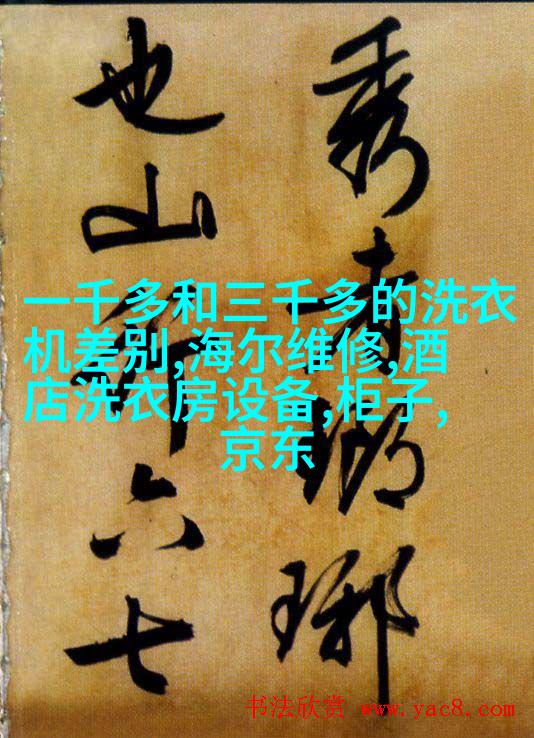 秀者瑯琊
也山行六七
一千多和三千多的洗衣
机差别,海尔维修,酒
店洗衣房设备,柜子,
京东
书法欣赏 www.yac8.com